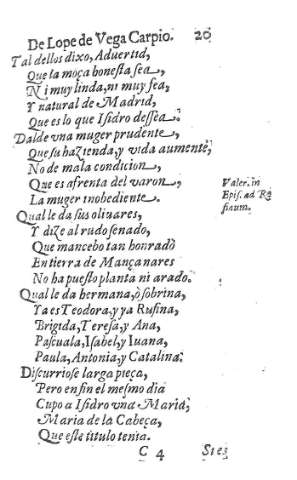 De Lope de Vega Carpio. 20
Tal dellos dixo, Aduertid,
Que la moça honesta sea,
Ni muy linda, ni muy fea,
Y natural de Madrid,
Que es lo que Isidro dessea.
Dalde vna muger prudente,
Que su hazienda, y vida aumente,
No de mala condicion,
Que es afrenta del varon,
La muger inobediente.
Valer. in
Epis. ad Ru
finum.
Qual le da sus oliuares,
Y dize al rudo senado,
Que mancebo tan honrado
En tierra de Mançanares
No ha puesto planta ni arado.
Qual le da hermana, o sobrina,
Ya es Teodora, y ya Rufina,
Brigida, Teresa, y Ana,
Pascuala, Isabel, y Iuana,
Paula, Antonia, y Catalina.
Discurriose larga pieça,
Pero enfin el mesmo dia
Cupo a Isidro vna Maria,
Maria de la Cabeça,
Que este titulo tenia.
C 4 Si es